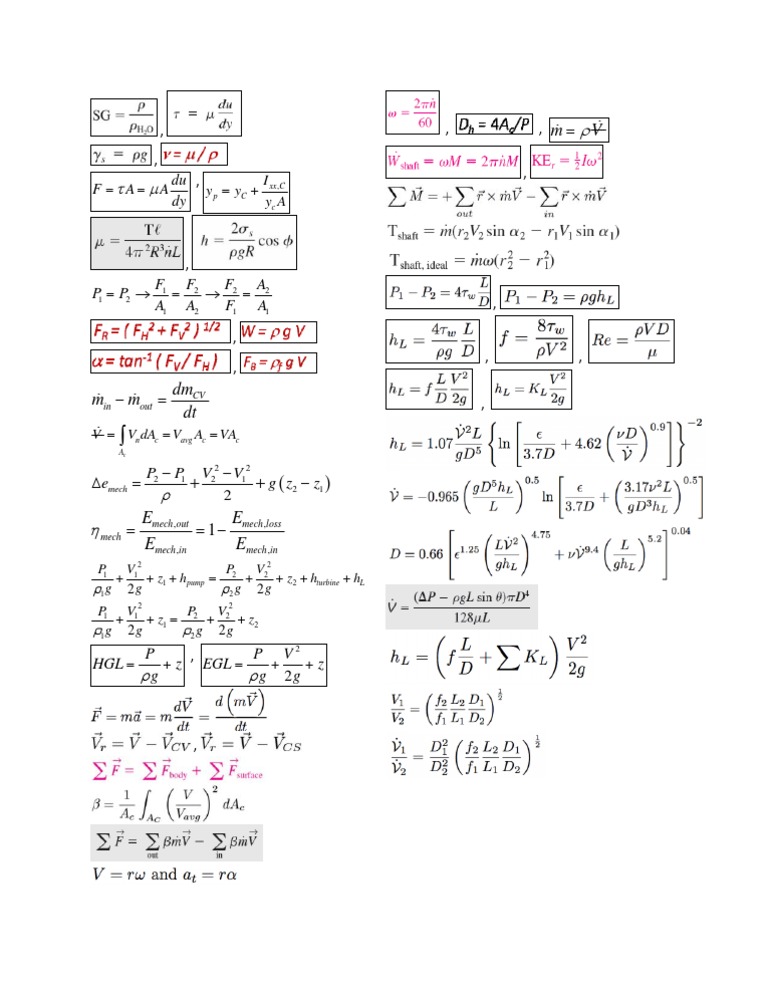 SG = ρ/ρ_H₂O , τ = μ du/dy
γₛ = ρg , ν = μ / ρ
F = τA = μA du/dy , y_p = y_C + I_xx,C/(y_c A)
μ = Tℓ/(4π²R³ṅL) , h = 2σₛ/(ρgR) cos ϕ
P₁ = P₂ → F₁/A₁ = F₂/A₂ → F₂/F₁ = A₂/A₁
F_R = ( F_H² + F_V² ) ^1/2 , W = ρ g V
α = tan⁻¹ ( F_V / F_H ) , F_B = ρ_f g V
ṁ_in − ṁ_out = dm_CV/dt
V̶̇ = ∫_A_c V_n dA_c = V_avg A_c = VA_c
Δe_mech = (P₂ − P₁)/ρ + (V₂² − V₁²)/2 + g ( z₂ − z₁ )
η_mech = E_mech,out/E_mech,in = 1 − E_mech,loss/E_mech,in
P₁/(ρ₁g) + V₁²/2g + z₁ + h_pump = P₂/(ρ₂g) + V₂²/2g + z₂ + h_turbine + h_L
P₁/(ρ₁g) + V₁²/2g + z₁ = P₂/(ρ₂g) + V₂²/2g + z₂
HGL = P/(ρg) + z , EGL = P/(ρg) + V²/2g + z
F⃗ = ma⃗ = m dV⃗/dt = d(mV⃗)/dt
V⃗_r = V⃗ − V⃗_CV , V⃗_r = V⃗ − V⃗_CS
∑ F⃗ = ∑ F⃗_body + ∑ F⃗_surface
β = 1/A_c ∫_AC (V/V_avg)² dA_c
∑ F⃗ = ∑_out βṁV⃗ − ∑_in βṁV⃗
V = rω and a_t = rα
ω = 2πṅ/60 , D_h = 4A_c/P , ṁ = ρV̶̇
Ẇ_shaft = ωM = 2πṅM , KE_r = ½Iω²
∑ M⃗ = + ∑_out r⃗ × ṁV⃗ − ∑_in r⃗ × ṁV⃗
T_shaft = ṁ(r₂V₂ sin α₂ − r₁V₁ sin α₁)
T_shaft, ideal = ṁω(r₂² − r₁²)
P₁ − P₂ = 4τ_w L/D , P₁ − P₂ = ρgh_L
h_L = 4τ_w/ρg L/D , f = 8τ_w/(ρV²) , Re = ρVD/μ
h_L = f L/D V²/2g , h_L = K_L V²/2g
h_L = 1.07 V̇²L/(gD⁵) {ln [ϵ/3.7D + 4.62 (νD/V̇)^0.9]}^−2
V̇ = −0.965 (gD⁵h_L/L)^0.5 ln [ϵ/3.7D + (3.17ν²L/(gD³h_L))^0.5]
D = 0.66 [ϵ^1.25 (LV̇²/(gh_L))^4.75 + νV̇^9.4 (L/(gh_L))^5.2]^0.04
V̇ = (ΔP − ρgL sin θ)πD⁴/(128μL)
h_L = (f L/D + ∑ K_L) V²/2g
V₁/V₂ = (f₂/f₁ L₂/L₁ D₁/D₂)^½
V̇₁/V̇₂ = D₁²/D₂² (f₂/f₁ L₂/L₁ D₁/D₂)^½